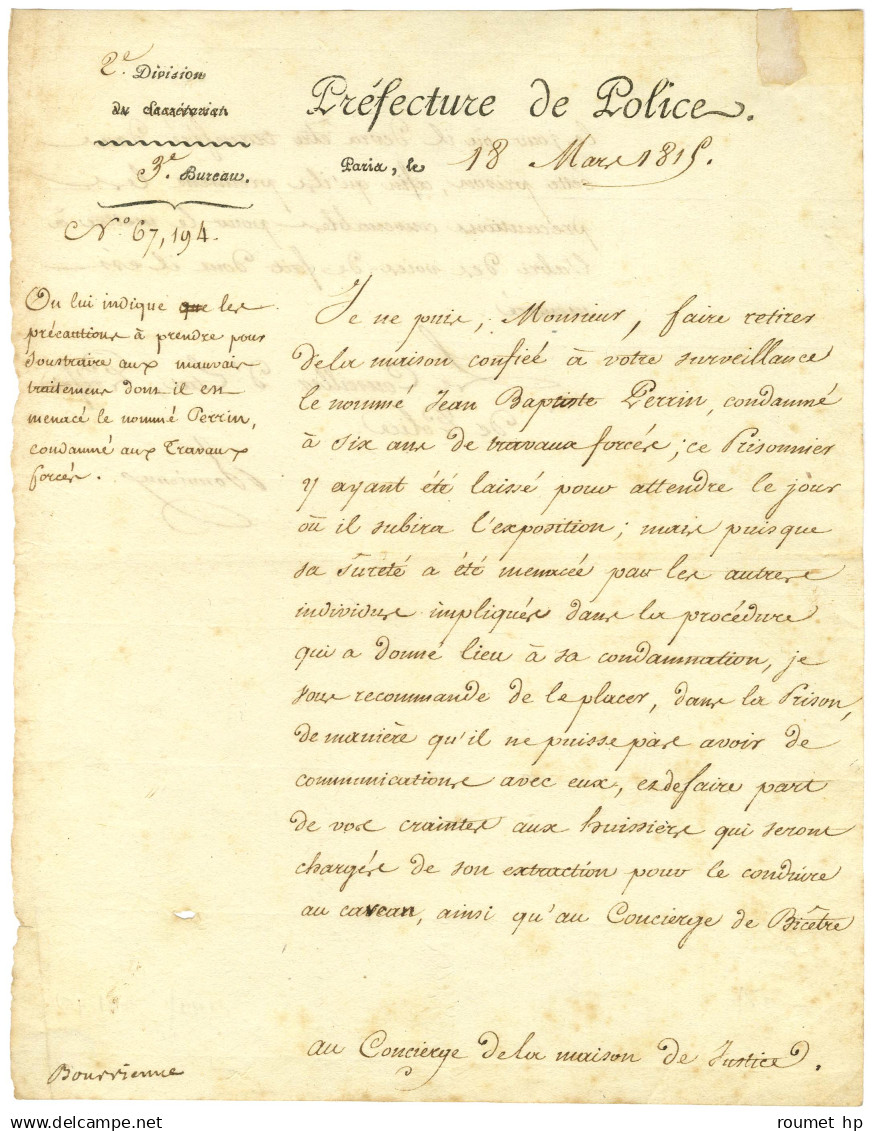 2e. Division
du Secrétariat
3e. Bureau.
No. 67,194.
Préfecture de Police.
Paris, le 18 Mars 1815.
On lui indique que les
précautions à prendre pour
soustraire aux mauvais
traitemens dont il est
menacé le nommé Perrin,
condamné aux Travaux
forcés.
Je ne puis, Monsieur, faire retirer
de la maison confiée à votre surveillance
le nommé Jean Baptiste Perrin, condamné
à six ans de travaux forcés; ce Prisonnier
y ayant été laissé pour attendre le jour
où il subira l'exposition; mais puisque
sa sûreté a été menacée par les autres
individus impliqués dans la procédure
qui a donné lieu à sa condamnation, je
vous recommande de le placer, dans la Prison,
de manière qu'il ne puisse pas avoir de
communications avec eux, et de faire part
de vos craintes aux huissiers qui seront
chargés de son extraction pour le conduire
au caveau, ainsi qu'au Concierge de Bicêtre
au Concierge de la maison de Justice.
Bourrienne
roumet hp